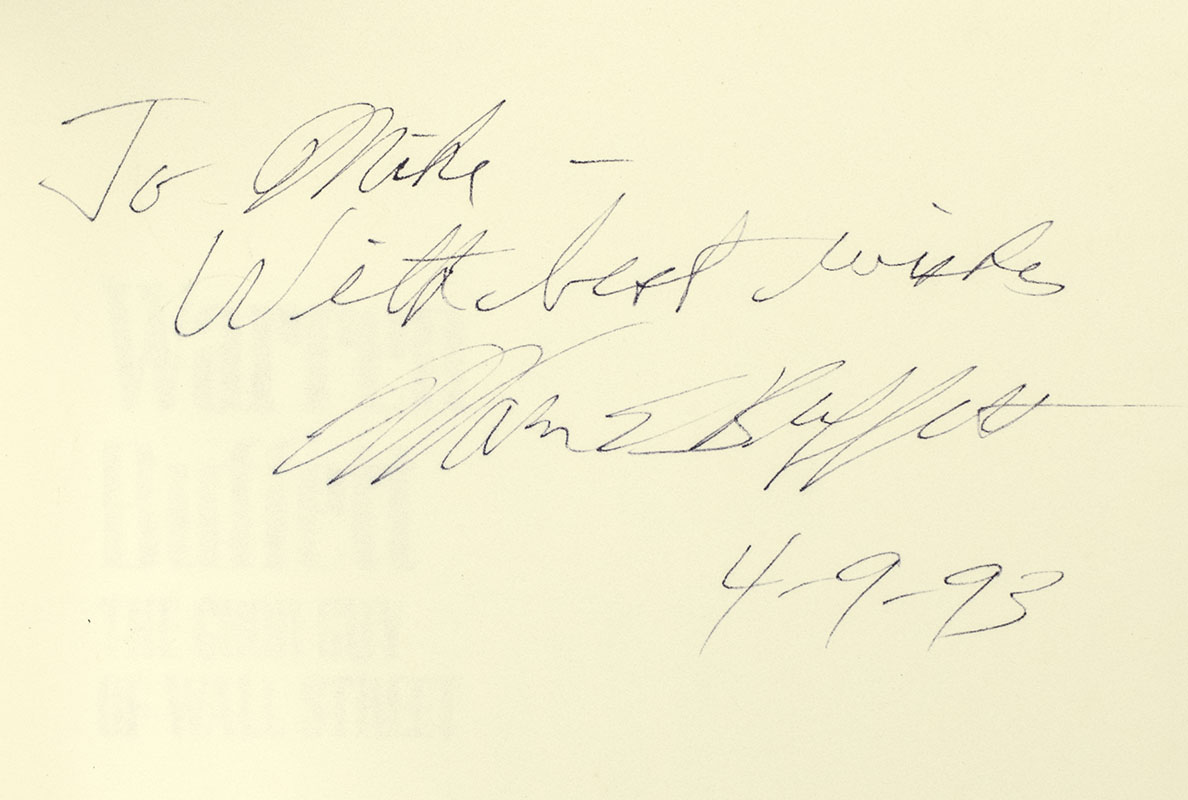 To Mike –
With best wishes
Warren E Buffett
4-9-93